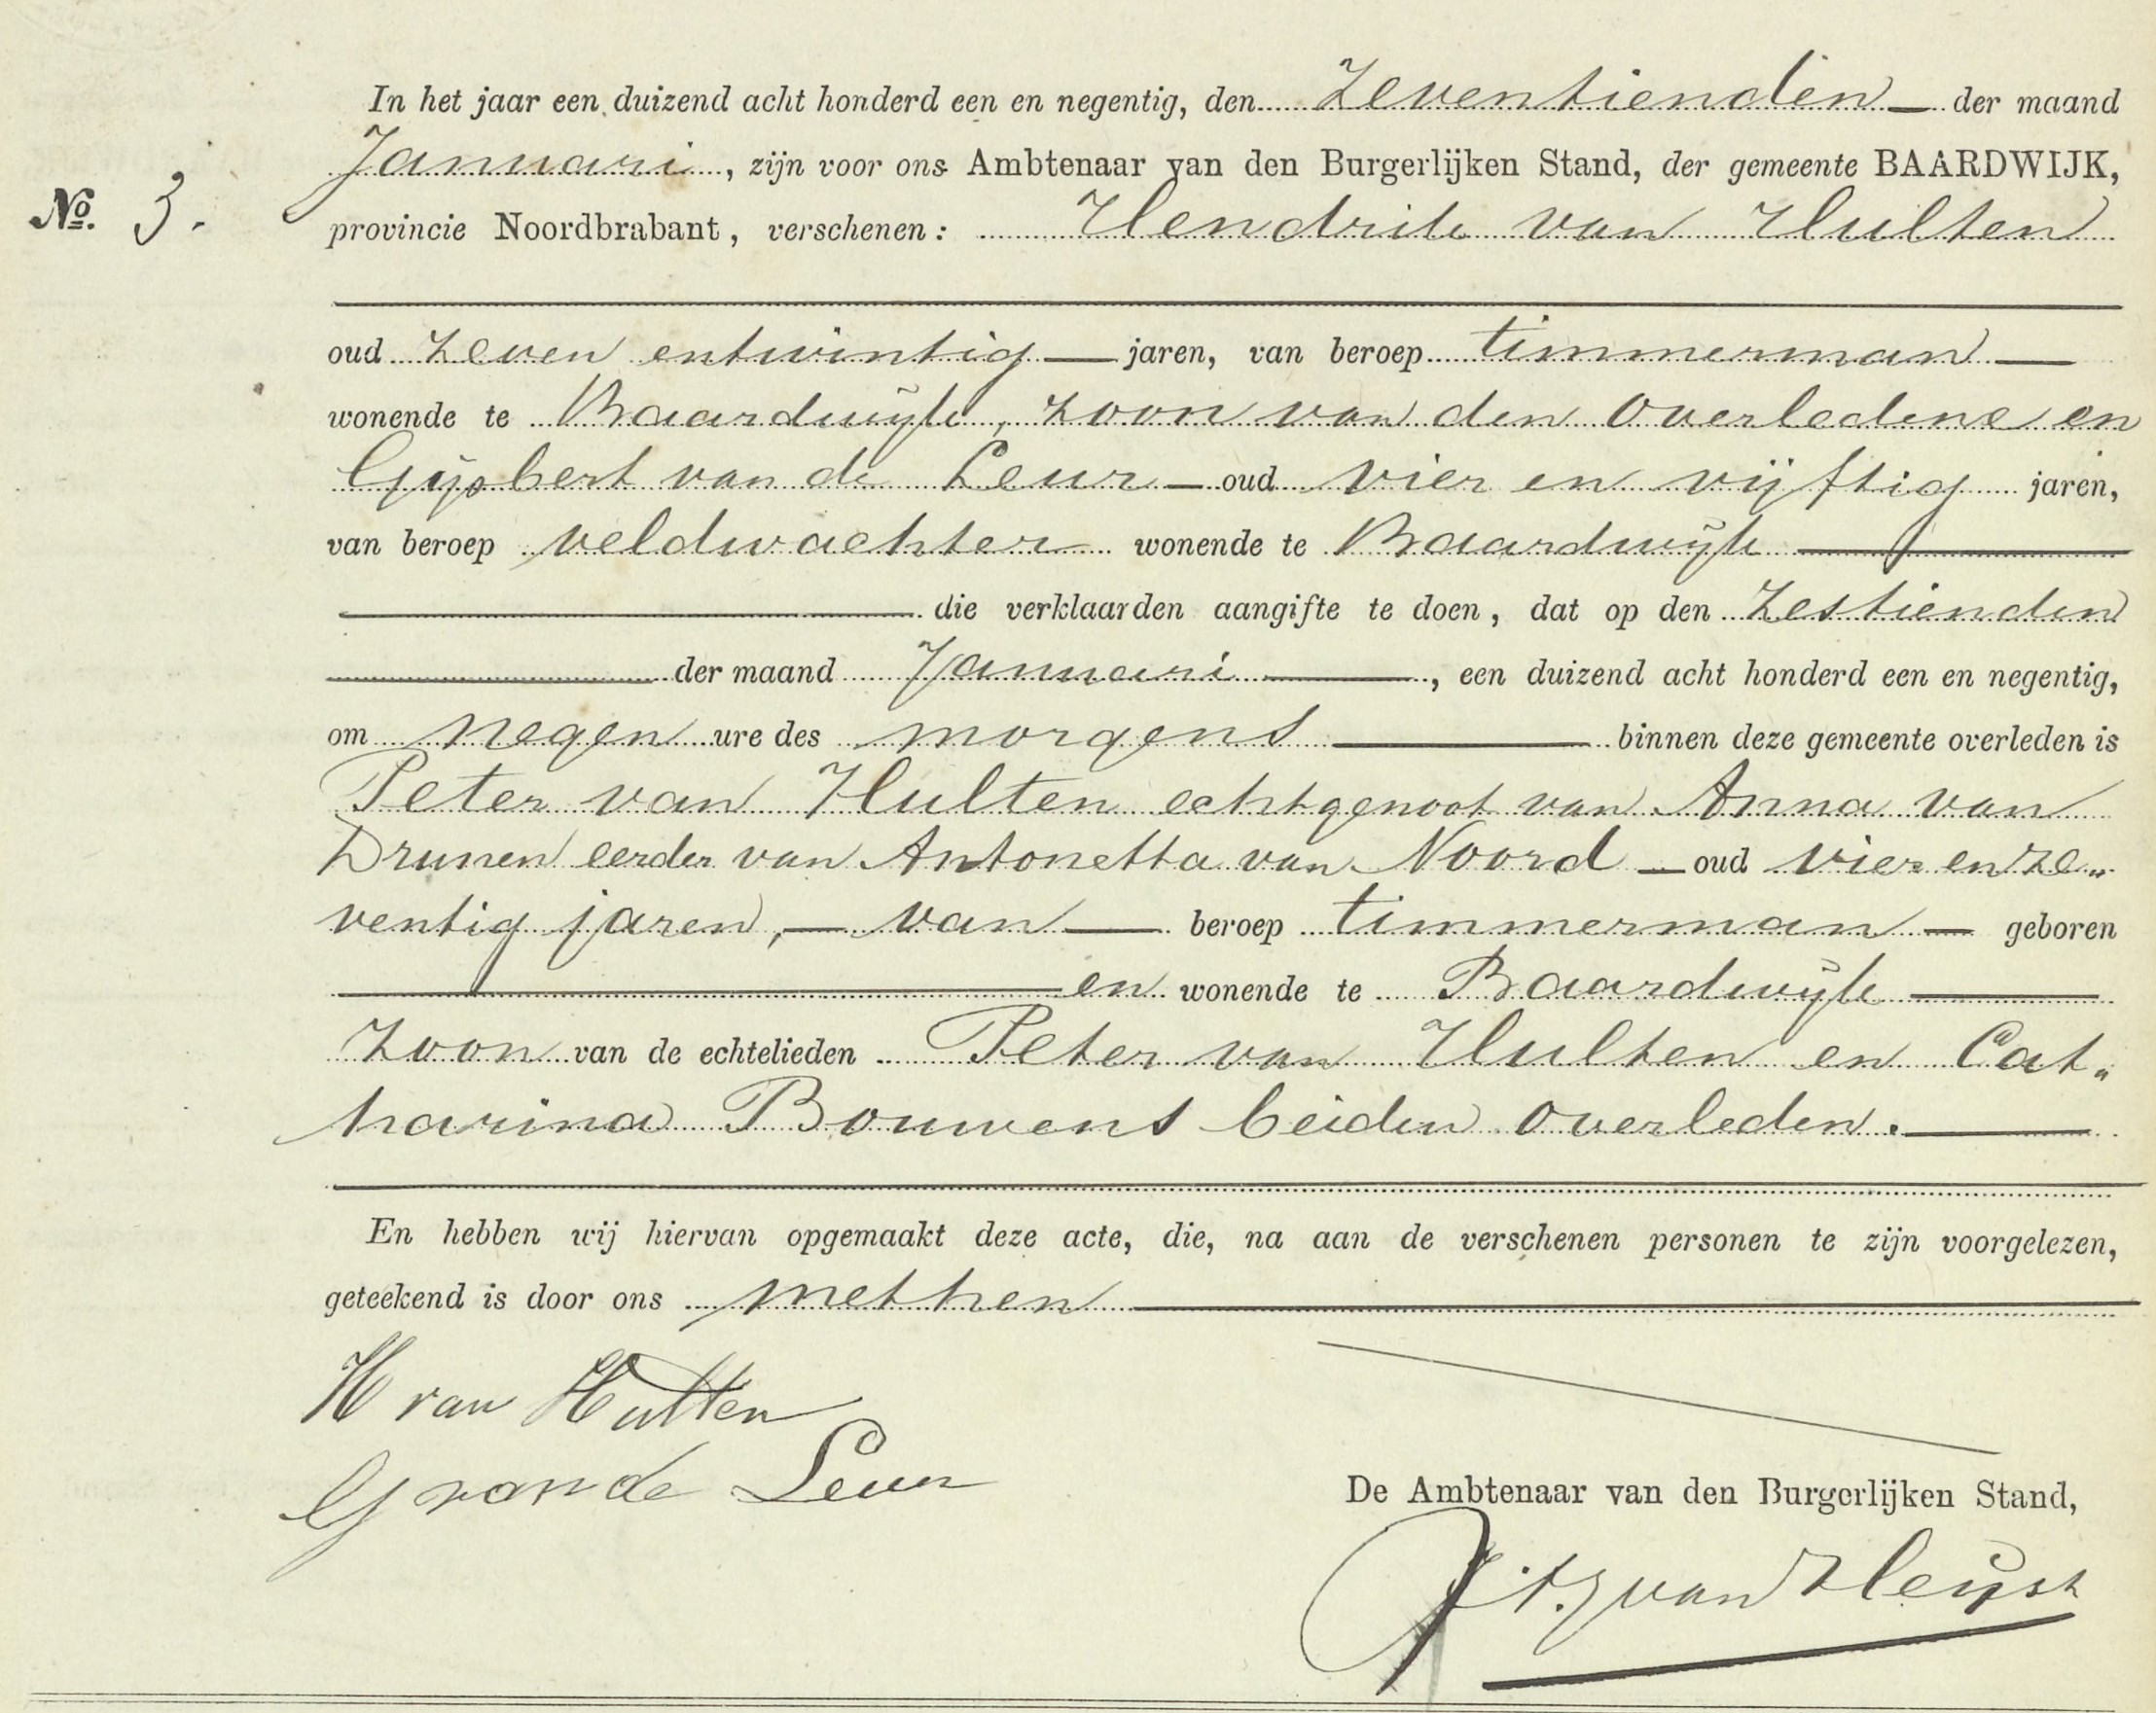 In het jaar een duizend acht honderd een en negentig, den Zeventienden der maand
Januari, zijn voor ons Ambtenaar van den Burgerlijken Stand, der gemeente BAARDWIJK,
No. 3. provincie Noordbrabant, verschenen: Hendrik van Hulten
oud zeven entwintig jaren, van beroep timmerman
wonende te Baardwijk, zoon van den overledene en
Gijsbert van de Leur oud vier en vijftig jaren,
van beroep veldwachter wonende te Baardwijk
die verklaarden aangifte te doen, dat op den Zestienden
der maand Januari, een duizend acht honderd een en negentig,
om negen ure des morgens binnen deze gemeente overleden is
Peter van Hulten echtgenoot van Anna van
Drunen eerder van Antonetta van Noord oud vier en ze„
ventig jaren, van beroep timmerman geboren
en wonende te Baardwijk
Zoon van de echtelieden Peter van Hulten en Cat„
harina Bouwens beiden overleden.
En hebben wij hiervan opgemaakt deze acte, die, na aan de verschenen personen te zijn voorgelezen,
geteekend is door ons met hen
H van Hulten
G van de Leur
De Ambtenaar van den Burgerlijken Stand,
van Heijst